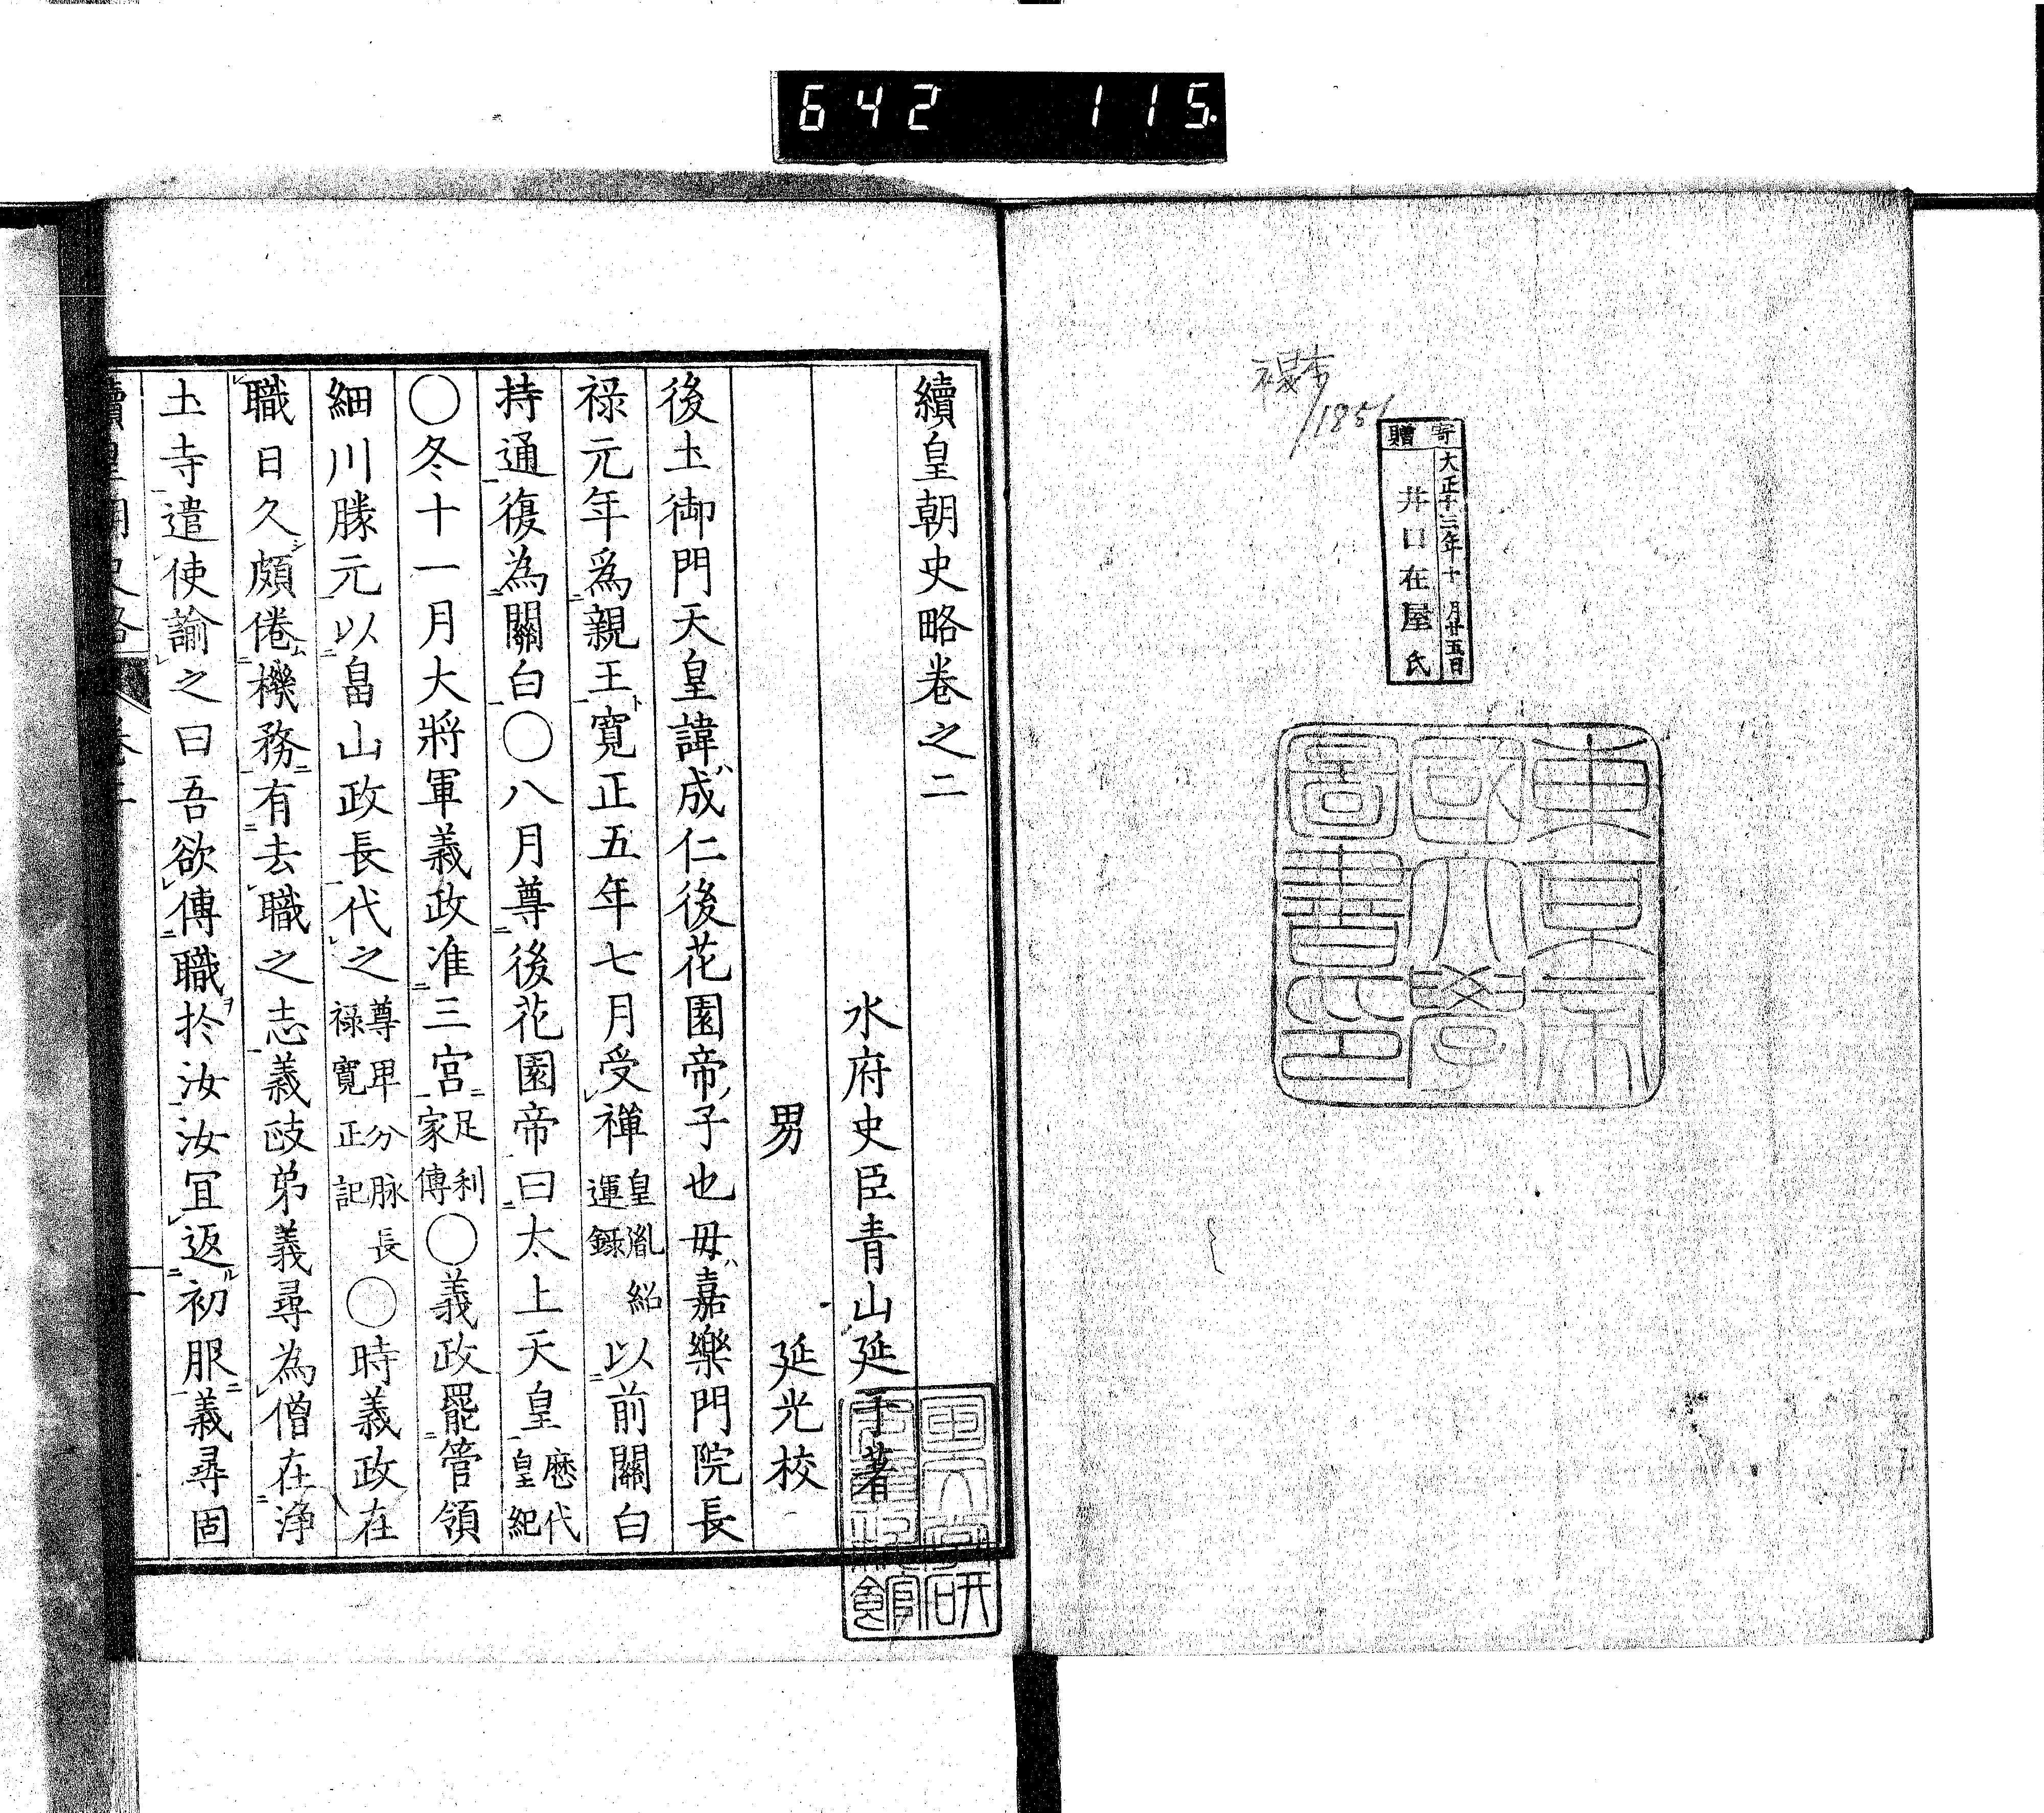 642 115.
1851
寄贈
大正十三年十月廿五日
井口在屋氏
東京帝
國大學
圖書印
續皇朝史略卷之二
水府史臣青山延于著
男 延光校
後土御門天皇諱ハ成仁後花園帝ノ子也母ハ嘉樂門院長
祿元年爲親王ト寛正五年七月受禪皇胤紹運錄以前關白
持通復為關白〇八月尊後花園帝曰太上天皇歷代皇紀
〇冬十一月大將軍義政准三宮足利家傳〇義政罷管領
細川勝元以畠山政長代之尊卑分脉長祿寛正記〇時義政在
職日久頗倦機務有去職之志義政弟義尋為僧在淨
土寺遣使諭之曰吾欲傳職ヲ於汝汝宜返初服義尋固